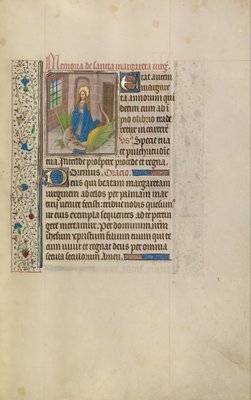 Memoria de sancta margareta virg.
Erat autem
margare
ta annorum qui
decim cum ab im
pio olibrio trade
retur in carcerem
vs. Specie tua
et pulchritudine
tua. Intende prospere procede et regna.
Oremus. Oracio.
Deus qui beatam margaretam
virginem ad celos per palmam mar
tirii venire fecisti: tribue nobis quesumus
ut eius exempla sequentes ad te pertin
gere mereamur. Per dominum nostrum
ihesum xpristum filium tuum qui te
cum vivit et regnat deus per omnia
secula seculorum. Amen.